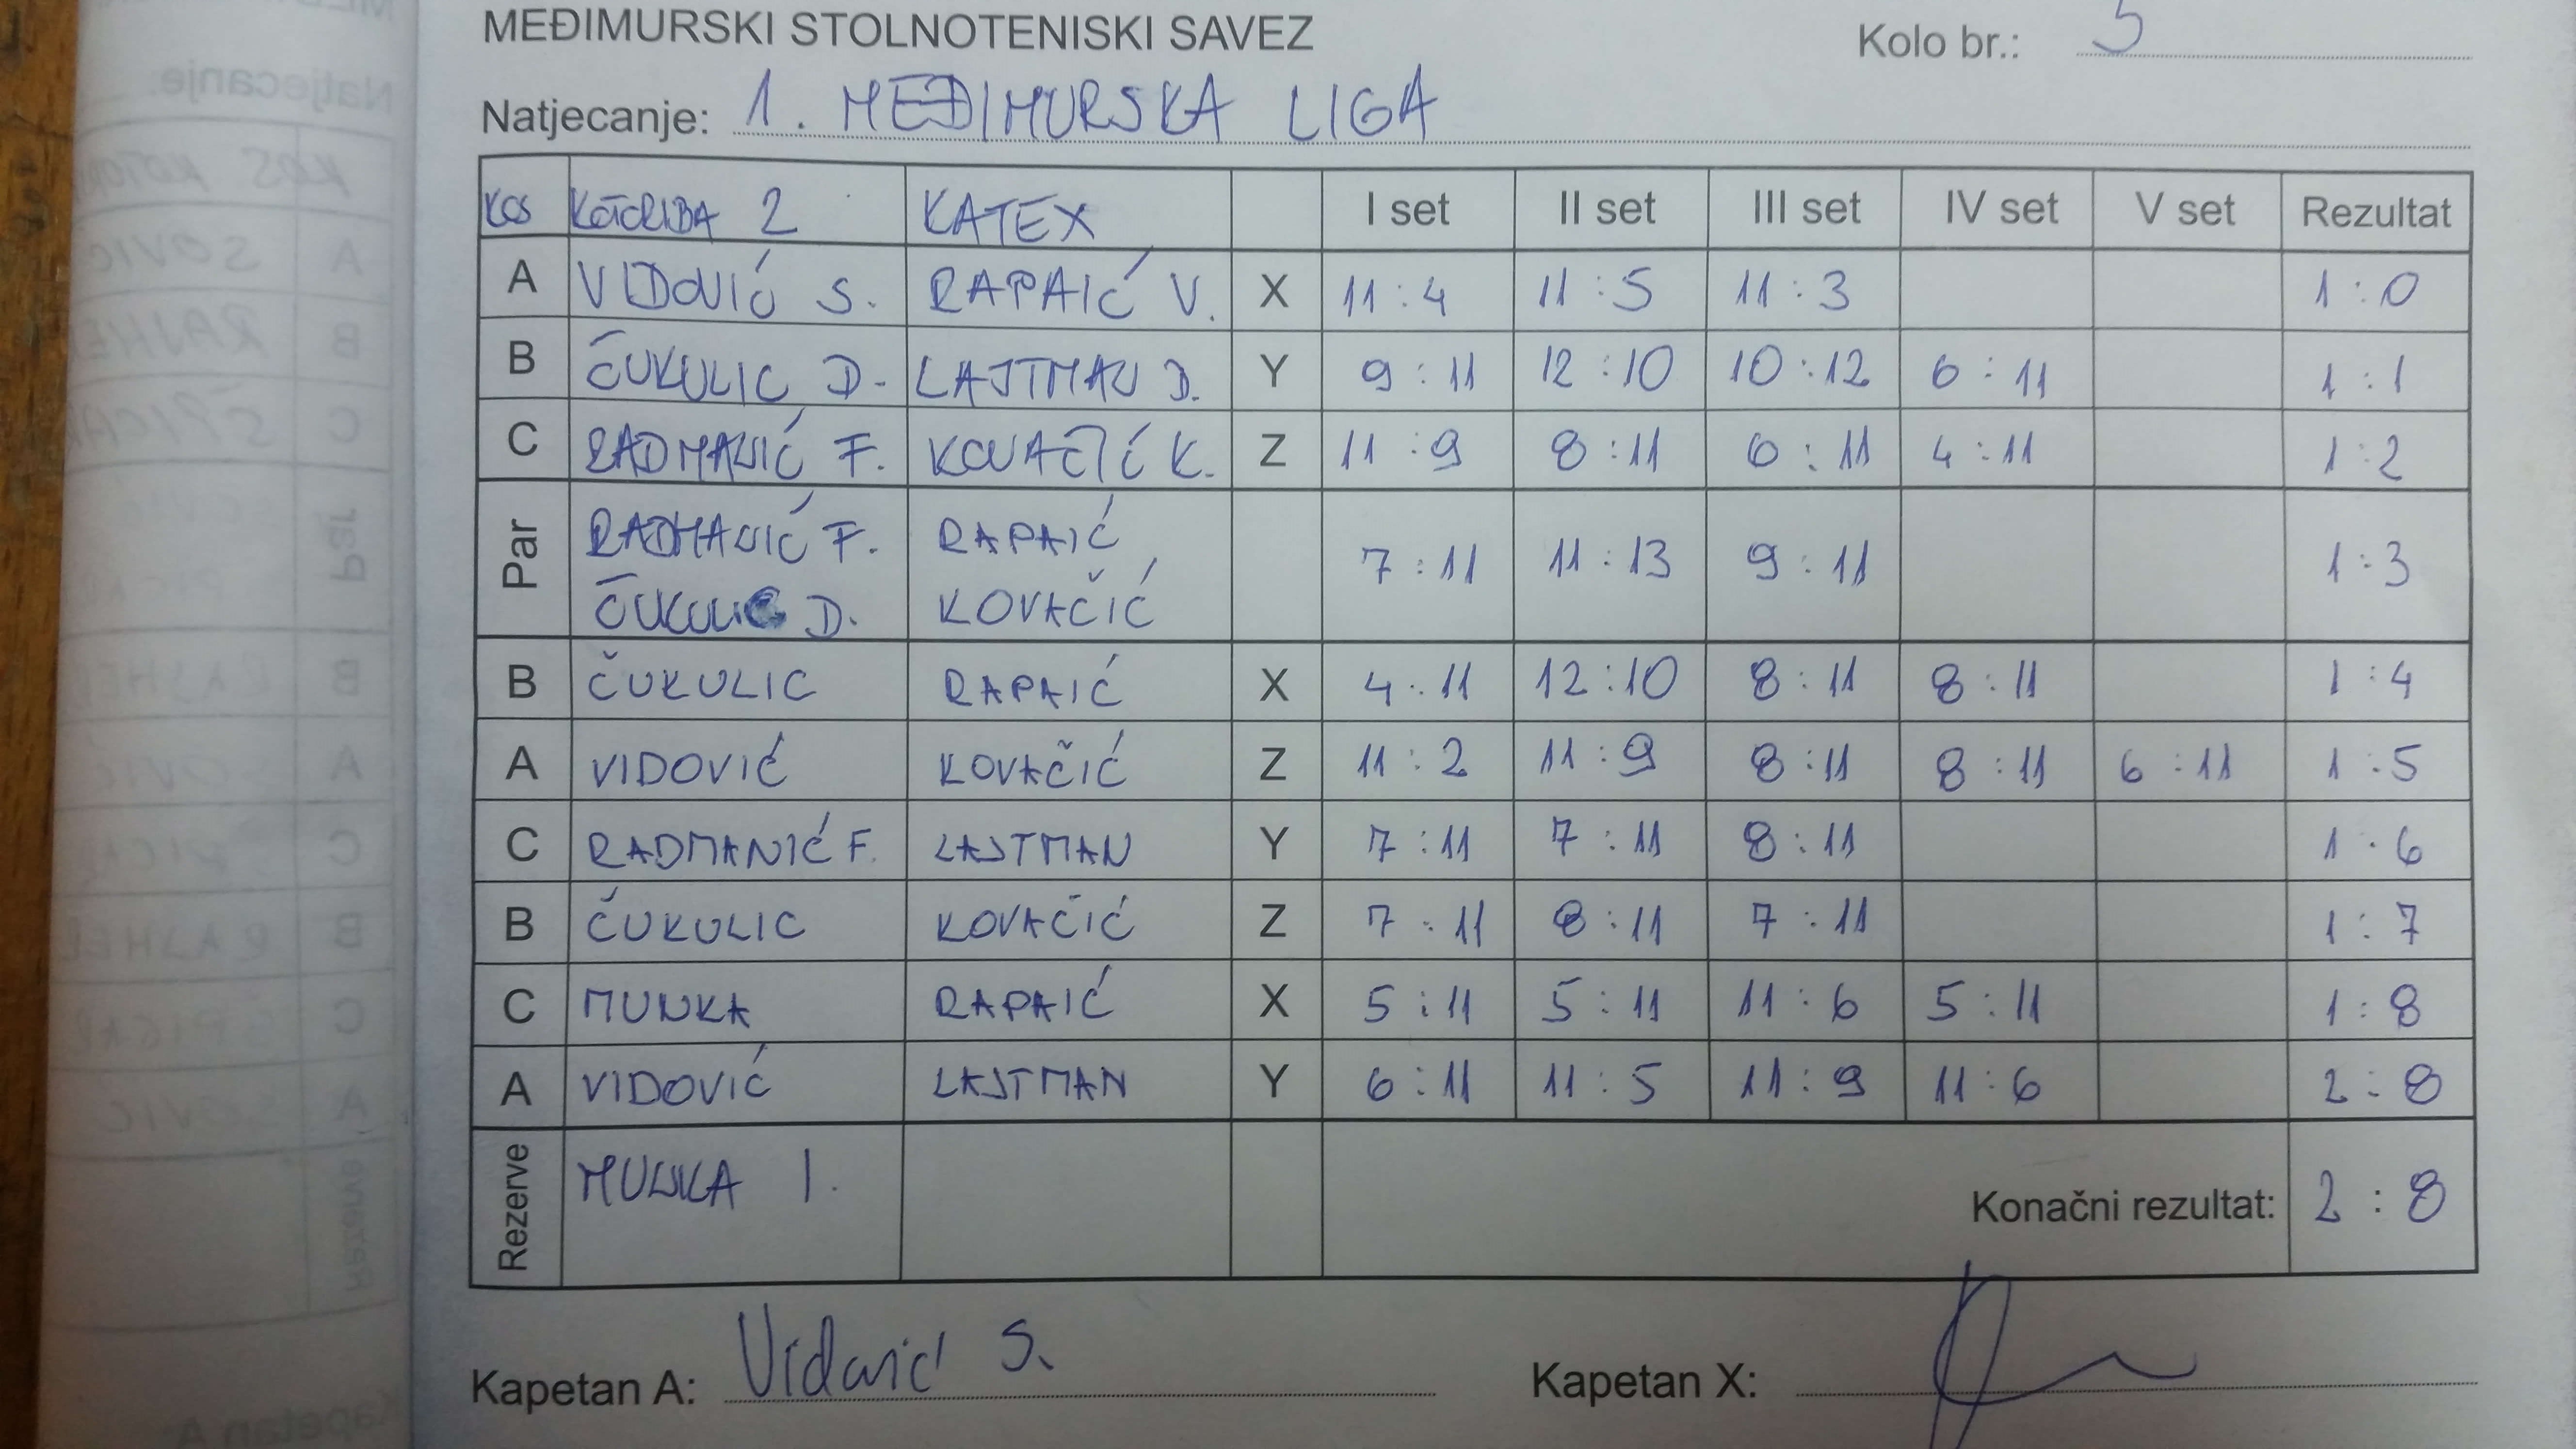 MEĐIMURSKI STOLNOTENISKI SAVEZ Kolo br.: 5
Natjecanje: 1. MEĐIMURSKA LIGA
KOS KOTORIBA 2 KATEX I set II set III set IV set V set Rezultat
A VIDOVIĆ S. RAPAIĆ V. X 11:4 11:5 11:3 1:0
B ČUKULIC D. LAJTMAN D. Y 9:11 12:10 10:12 6:11 1:1
C RADMANIĆ F. KOVAČIĆ K. Z 11:9 8:11 6:11 4:11 1:2
Par RADMANIĆ F. RAPAIĆ 7:11 11:13 9:11 1:3
ČUKULIC D. KOVAČIĆ
B ČUKULIC RAPAIĆ X 4:11 12:10 8:11 8:11 1:4
A VIDOVIĆ KOVAČIĆ Z 11:2 11:9 8:11 8:11 6:11 1:5
C RADMANIĆ F. LAJTMAN Y 7:11 7:11 8:11 1:6
B ČUKULIC KOVAČIĆ Z 7:11 8:11 7:11 1:7
C MUNKA RAPAIĆ X 5:11 5:11 11:6 5:11 1:8
A VIDOVIĆ LAJTMAN Y 6:11 11:5 11:9 11:6 2:8
Rezerve MUNKA I. Konačni rezultat: 2:8
Kapetan A: Vidović S. Kapetan X: